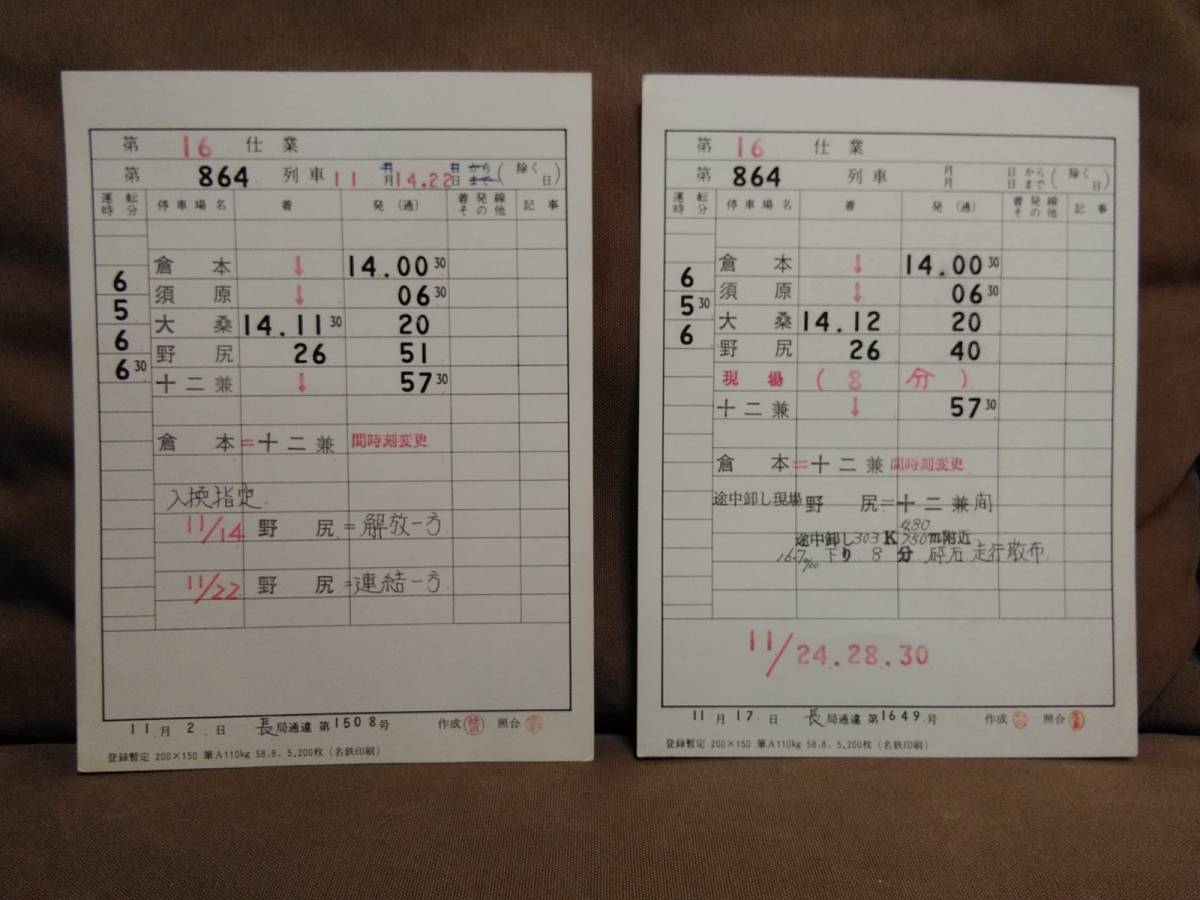 第 16 仕業
第 864 列車 11 月 14.22 日 から まで ( 除く 日 )
運転時分 停車場名 着 発(通) 着発線その他 記事
倉本 ↓ 14.00 30
6
須原 ↓ 06 30
5
大桑 14.11 30 20
6
野尻 26 51
6 30
十二兼 ↓ 57 30
倉本=十二兼 間時刻変更
入換指定
11/14 野尻=解放一方
11/22 野尻=連結一方
11月 2 日 長局通達 第1508号 作成 照合
登録暫定 200×150 筆A110kg 58.8. 5,200枚 (名鉄印刷)
第 16 仕業
第 864 列車 月 月 日から 日まで ( 除く 日 )
運転時分 停車場名 着 発(通) 着発線その他 記事
倉本 ↓ 14.00 30
6
須原 ↓ 06 30
5 30
大桑 14.12 20
6
野尻 26 40
現場 ( 8 分 )
十二兼 ↓ 57 30
倉本=十二兼 間時刻変更
途中卸し現場 野尻=十二兼間
480
途中卸し303K 750m附近
下り 8 分 砕石 走行散布
11/24.28.30
11月 17 日 長局通達 第1649号 作成 照合
登録暫定 200×150 筆A110kg 58.8. 5,200枚 (名鉄印刷)